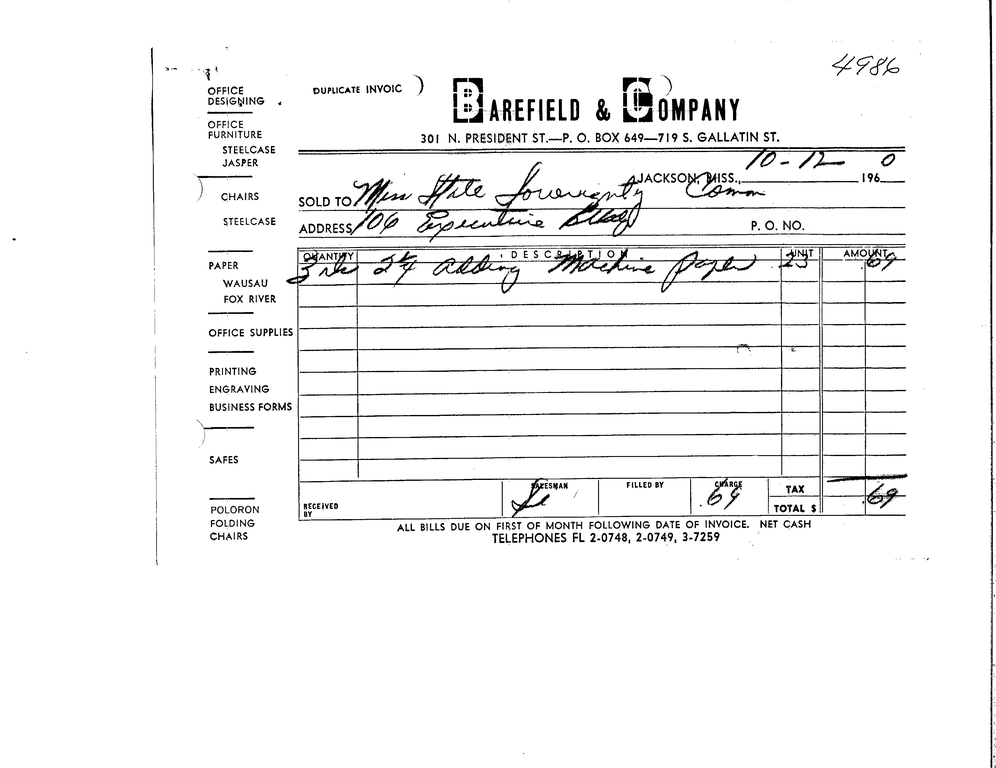 4986
DUPLICATE INVOIC
BAREFIELD & COMPANY
301 N. PRESIDENT ST.—P. O. BOX 649—719 S. GALLATIN ST.
OFFICE
DESIGNING
OFFICE
FURNITURE
STEELCASE
JASPER
CHAIRS
STEELCASE
PAPER
WAUSAU
FOX RIVER
OFFICE SUPPLIES
PRINTING
ENGRAVING
BUSINESS FORMS
SAFES
POLORON
FOLDING
CHAIRS
JACKSON, MISS., 10-12 1960
SOLD TO Miss State Sovereignty Comm
ADDRESS 106 Executive Bldg P. O. NO.
QUANTITY DESCRIPTION UNIT AMOUNT
3 rls 2 1/4 Adding Machine paper .23 .69
RECEIVED BY SALESMAN FILLED BY CHARGE .69 TAX
TOTAL $ .69
ALL BILLS DUE ON FIRST OF MONTH FOLLOWING DATE OF INVOICE. NET CASH
TELEPHONES FL 2-0748, 2-0749, 3-7259